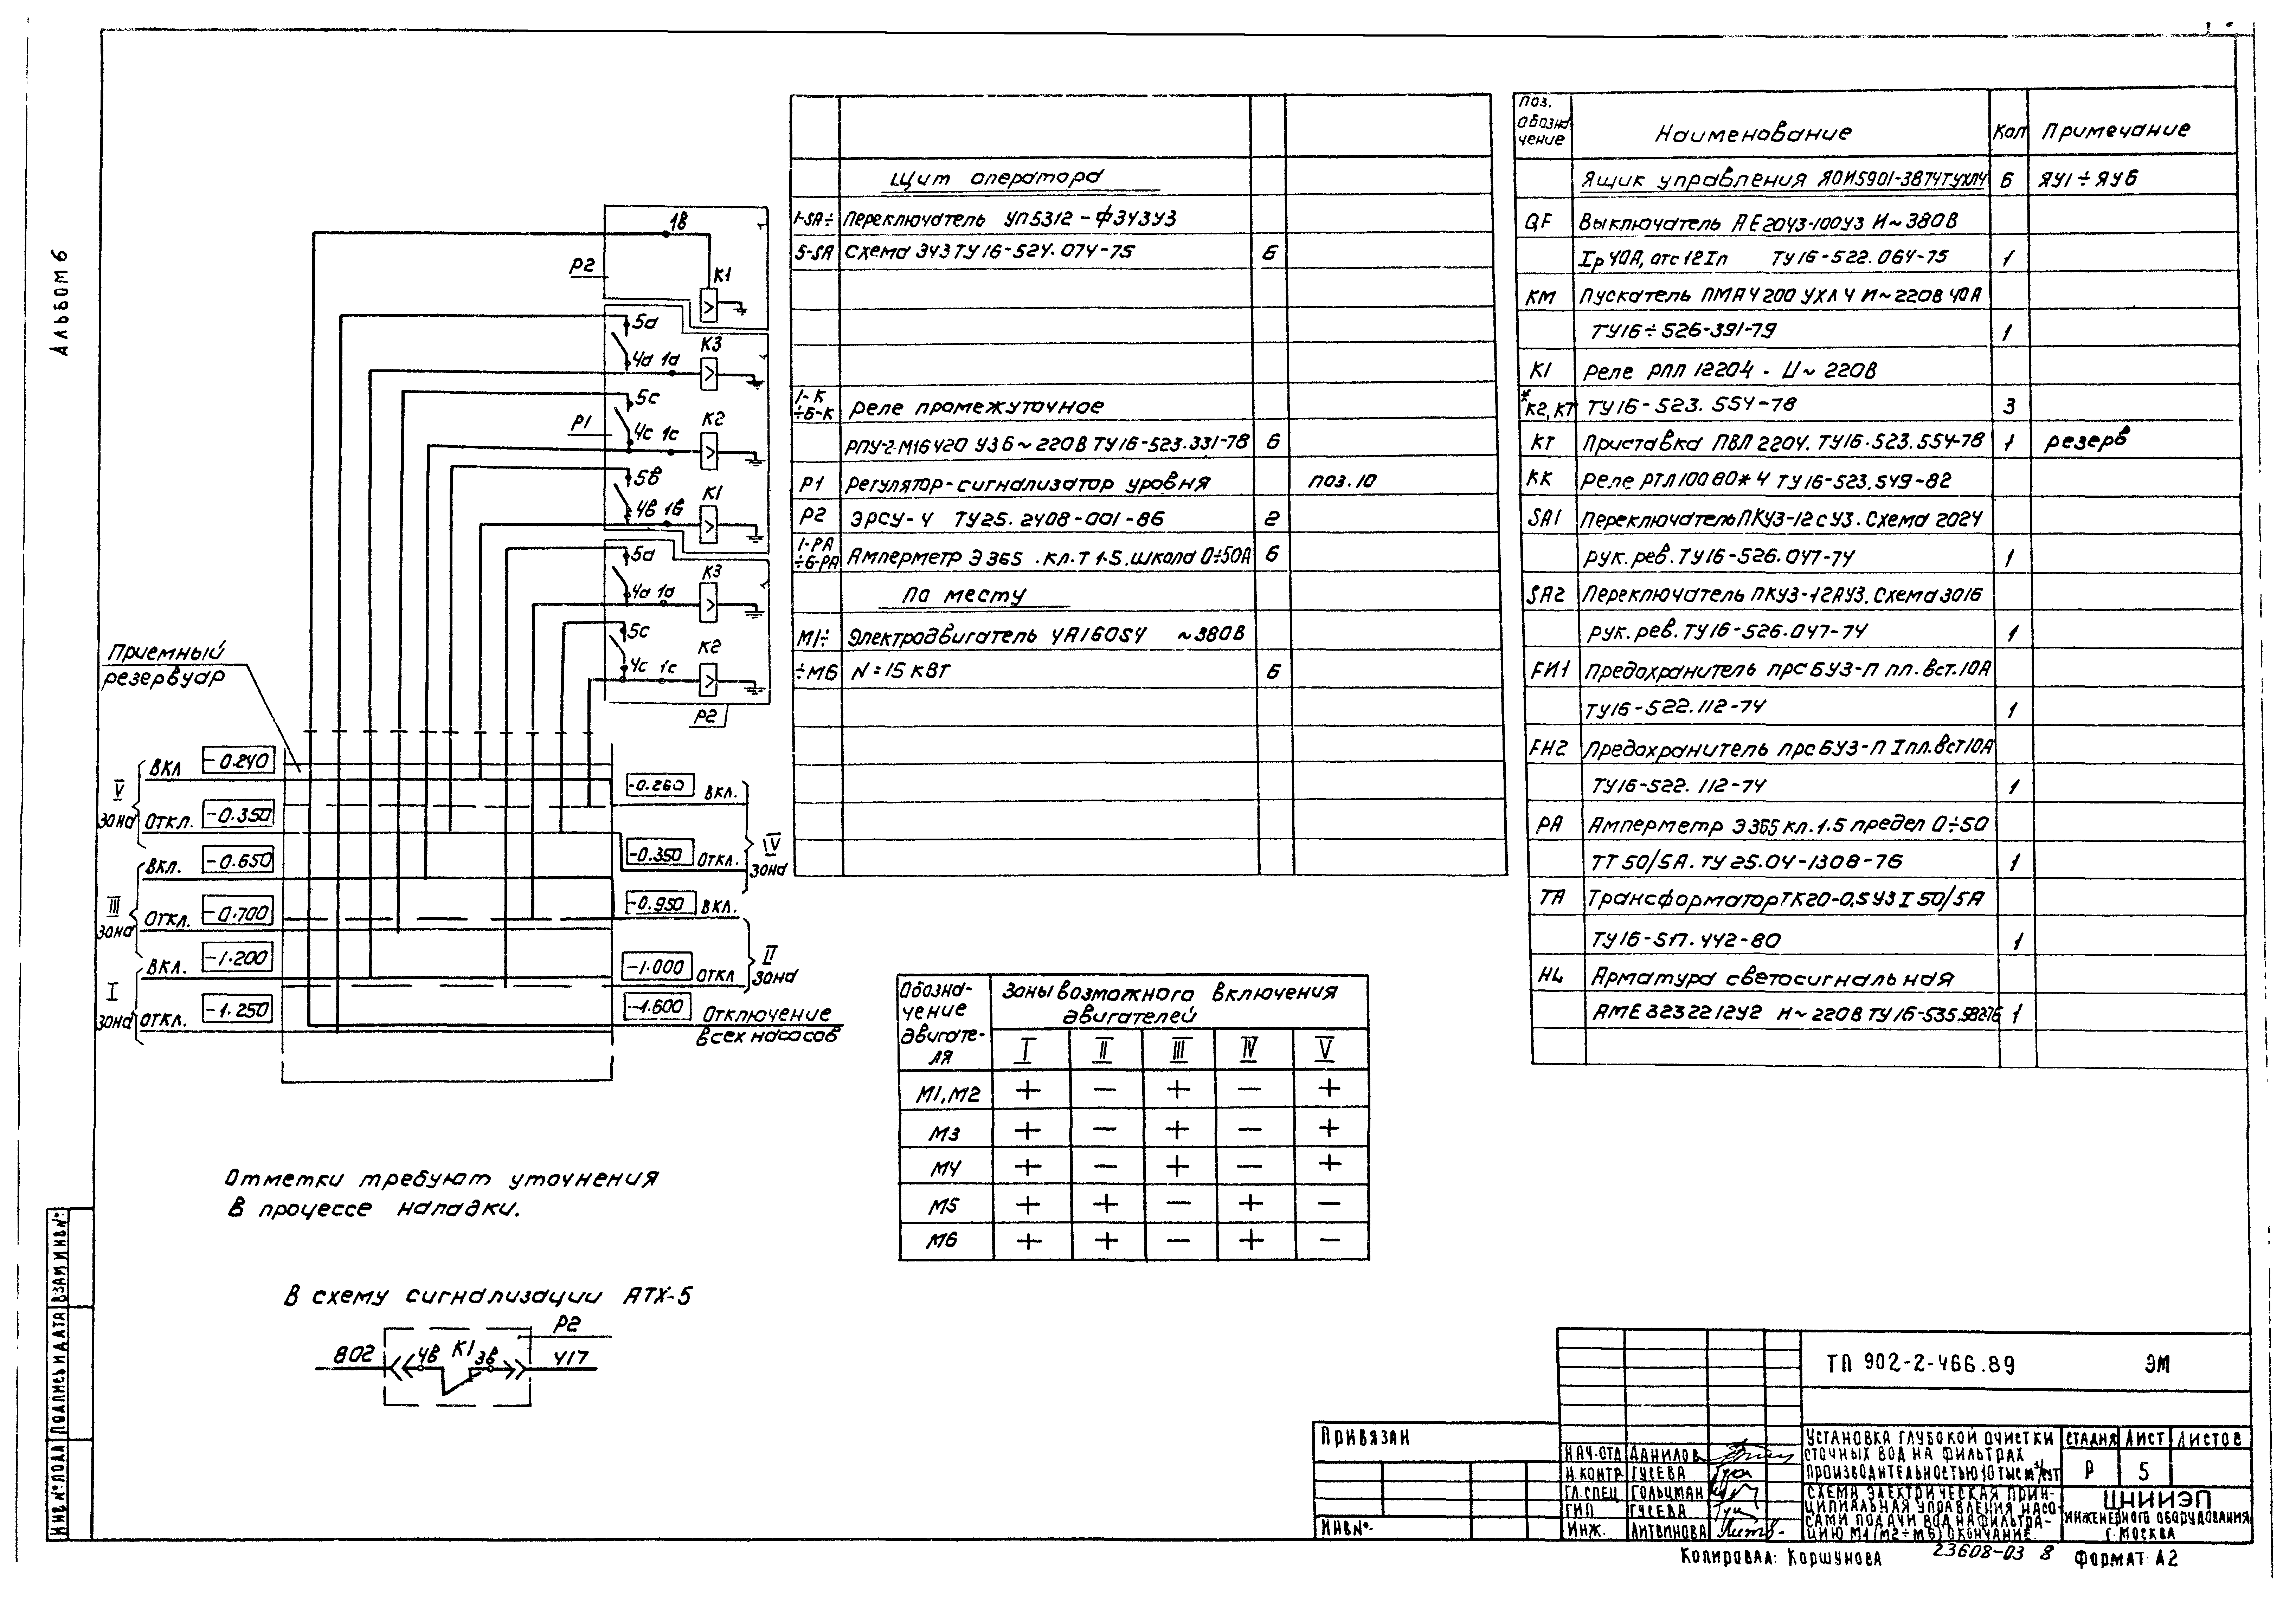 Альбом 6
1в
Р2
К1
5d
К3
4d 1d
5с
Р1
К2
4с 1с
5в
К1
4в 1в
5d
К3
4d 1d
5с
К2
4с 1с
Р2
Приемный
резервуар
V зона
ВКЛ -0.240
ОТКЛ. -0.350
III зона
ВКЛ. -0.650
ОТКЛ. -0.700
I зона
ВКЛ. -1.200
ОТКЛ. -1.250
-0.260 ВКЛ.
-0.350 ОТКЛ.
IV зона
-0.950 ВКЛ.
-1.000 ОТКЛ
II зона
-1.600 Отключение
всех насосов
Отметки требуют уточнения
в процессе наладки.
В схему сигнализации АТХ-5
Р2
802 4в К1 3в 417
Щит оператора
1-SA÷ Переключатель УП5312-Ф343У3
5-SA Схема 343 ТУ16-524.074-75 6
1-К
÷6-К Реле промежуточное
РПУ-2-М16420 У3 Б~220В ТУ16-523.331-78 6
Р1 Регулятор-сигнализатор уровня поз.10
Р2 ЭРСУ-4 ТУ25.2408-001-86 2
1-РА
÷6-РА Амперметр Э365 .кл.т 1.5.шкала 0÷50А 6
По месту
М1÷ Электродвигатель 4А160S4 ~380В
÷М6 N=15 кВт 6
Поз. обозначение Наименование Кол Примечание
Ящик управления ЯОИ5901-3874ТУХЛ4 6 ЯУ1÷ЯУ6
QF Выключатель АЕ2043-100У3 И~380В
Iр 40А, отс 12Iн ТУ16-522.064-75 1
КМ Пускатель ПМА4200 УХЛ4 И~220В 40А
ТУ16÷526-391-79 1
К1 Реле РПЛ 12204. И~220В
* К2, КТ ТУ16-523.554-78 3
КТ Приставка ПВЛ 2204. ТУ16.523.554-78 1 резерв
КК Реле РТЛ 10080*4 ТУ16-523.549-82
SA1 Переключатель ПКУ3-12сУ3. Схема 2024
рук.рев. ТУ16-526.047-74 1
SA2 Переключатель ПКУ3-12АУ3. Схема 3016
рук.рев. ТУ16-526.047-74 1
FИ1 Предохранитель прс 6У3-П пл. вст.10А
ТУ16-522.112-74 1
FН2 Предохранитель прс 6У3-П Iпл.вст10А
ТУ16-522.112-74 1
РА Амперметр Э365 кл.1.5 предел 0÷50
ТТ 50/5А. ТУ 25.04-1308-76 1
ТА Трансформатор ТК20-0,5У3 I 50/5А
ТУ16-517.442-80 1
HL Арматура светосигнальная
АМЕ 323221 2У2 И~220В ТУ16-535.582ТБ 1
Обозначение двигателя Зоны возможного включения двигателей
I II III IV V
М1, М2 + — + — +
М3 + — + — +
М4 + — + — +
М5 + + — + —
М6 + + — + —
ТП 902-2-466.89 ЭМ
Привязан
Инв №
Нач.отд Данилов
Н.контр Гусева
Гл.спец Гольцман
ГИП Гусева
Инж. Литвинова
Установка глубокой очистки
сточных вод на фильтрах
производительностью 10 тыс м³/сут
Стадия Лист Листов
Р 5
Схема электрическая прин-
ципиальная управления насо-
сами подачи вод на фильтра-
цию М1 (М2÷М6) Окончание.
ЦНИИЭП
инженерного оборудования
г. Москва
Копировал: Коршунова 23608-03 8 Формат: А2
Инв № подл Подпись и дата Взам инв №